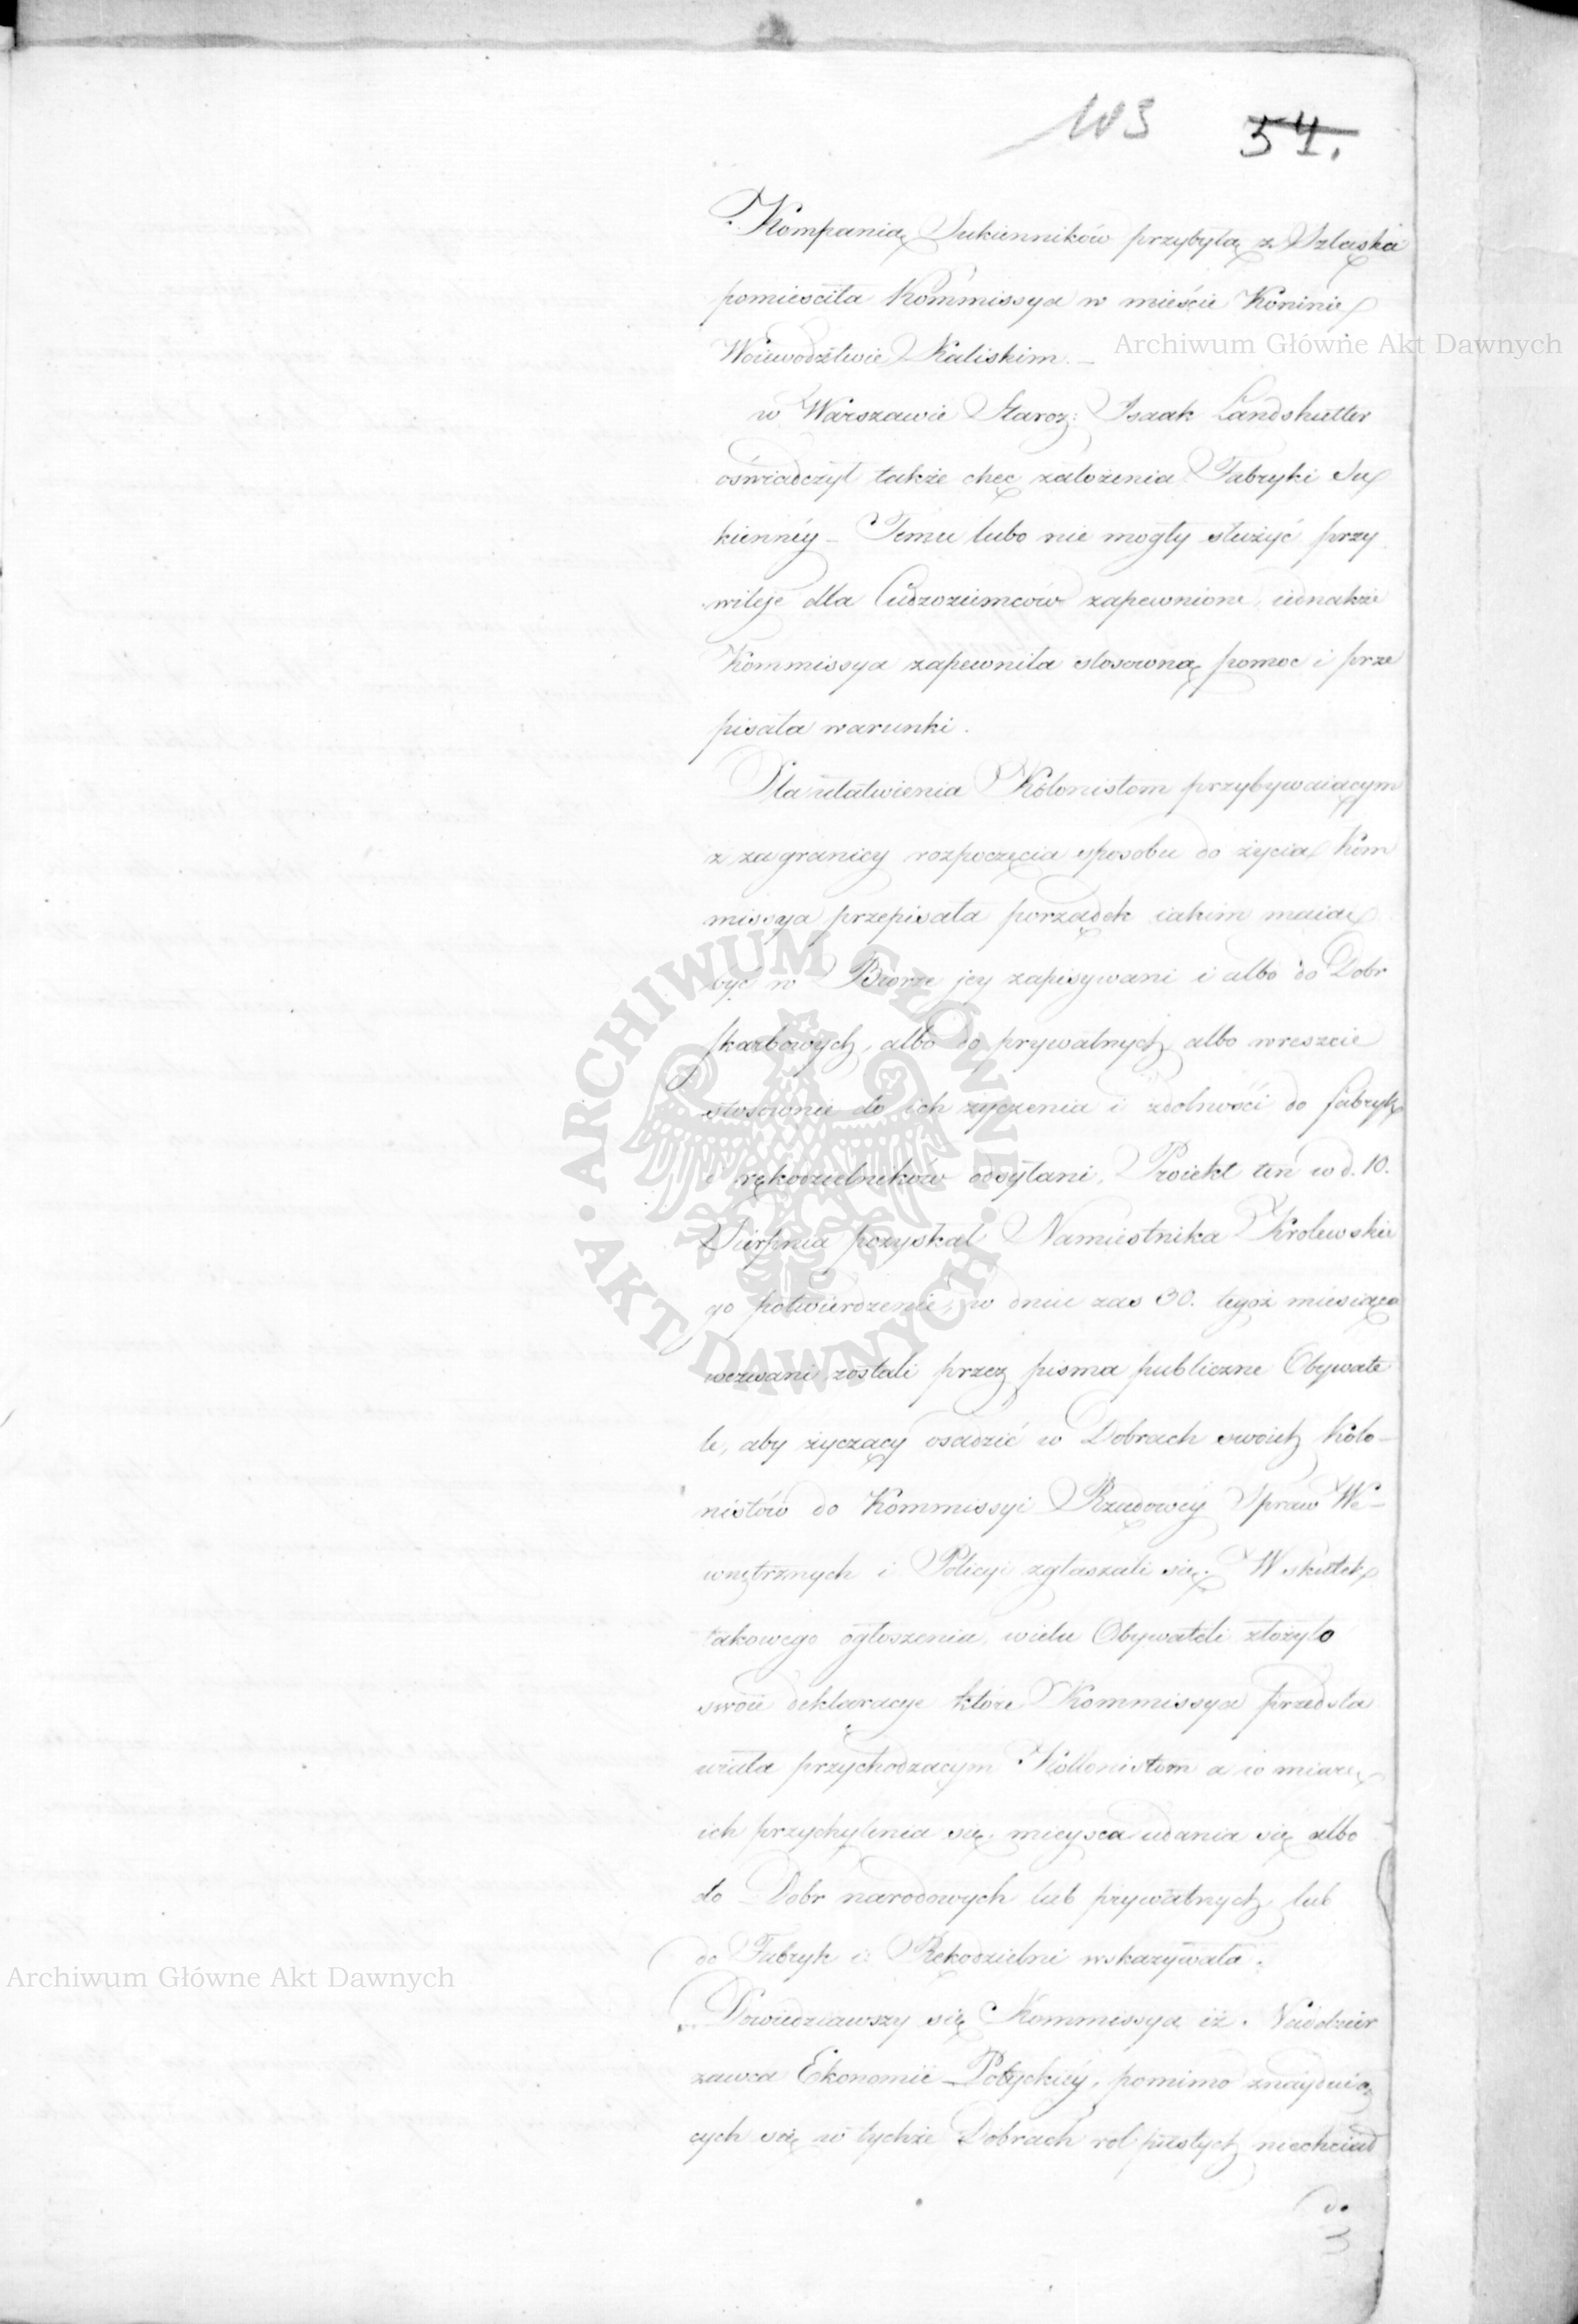 103 54.
Kompanią Sukienników przybyłą z Szląska
pomieściła Kommissya w mieście Koninie
Woiewodztwie Kaliskim. —
w Warszawie Staroz: Isaak Landshutter
oświadczył także chęc założenia Fabryki Su
kiennéy — Temu lubo nie mogły służyć przy
wileje dla Cudzoziemców zapewnione, iednakże
Kommissya zapewniła stosowną pomoc i prze
pisała warunki.
Dla ułatwienia Kolonistom przybywaiącym
z zagranicy rozpoczęcia sposobu do życia Kom
missya przepisała porządek iakim maią
być w Biorze jey zapisywani i albo do Dobr
skarbowych, albo do prywatnych albo wreszcie
stosownie do ich życzenia i zdolności do fabryk
i rękodzielników odsyłani, Proiekt ten w d. 10.
Sierpnia pozyskał Namiestnika Krolewskie
go potwierdzenie, w dniu zas 30. tegoż miesiąca
wezwani zostali przez pisma publiczne Obywate
le, aby życzący osadzić w Dobrach swoich Kolo-
nistów do Kommissyi Rządowéy Spraw We-
wnętrznych i Policyi zgłaszali się. W skutek
takowego ogłoszenia, wielu Obywateli złożyło
swoie deklaracye które Kommissya przedsta
wiała przychodzącym Kollonistom a w miarę
ich przychylenia się mieysca udania się albo
do Dobr narodowych lub prywatnych lub
do Fabryk i Rękodzielni wskazywała.
Dowiedziawszy się Kommissya iż Naddzier
zawca Ekonomii Potyckiéy, pomimo znayduią
cych się w tychże Dobrach rol pustych niechciał
do
Archiwum Główne Akt Dawnych
Archiwum Główne Akt Dawnych
ARCHIWUM GŁÓWNE • AKT DAWNYCH •